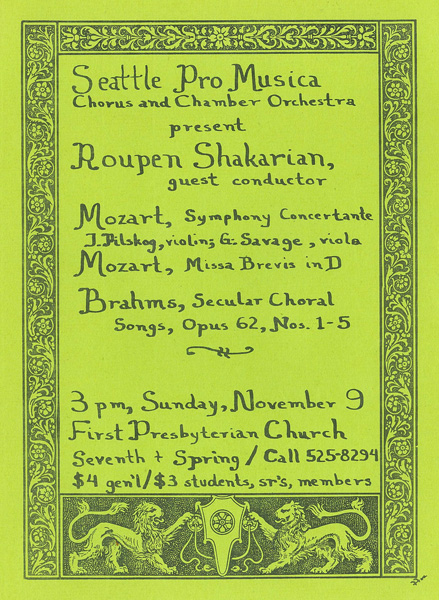 Seattle Pro Musica
Chorus and Chamber Orchestra
present
Roupen Shakarian,
guest conductor
Mozart, Symphony Concertante
J. Pilskog, violin; G. Savage, viola
Mozart, Missa Brevis in D
Brahms, Secular Choral
Songs, Opus 62, Nos. 1-5
3 pm, Sunday, November 9
First Presbyterian Church
Seventh + Spring / Call 525-8294
$4 gen'l/$3 students, sr's, members